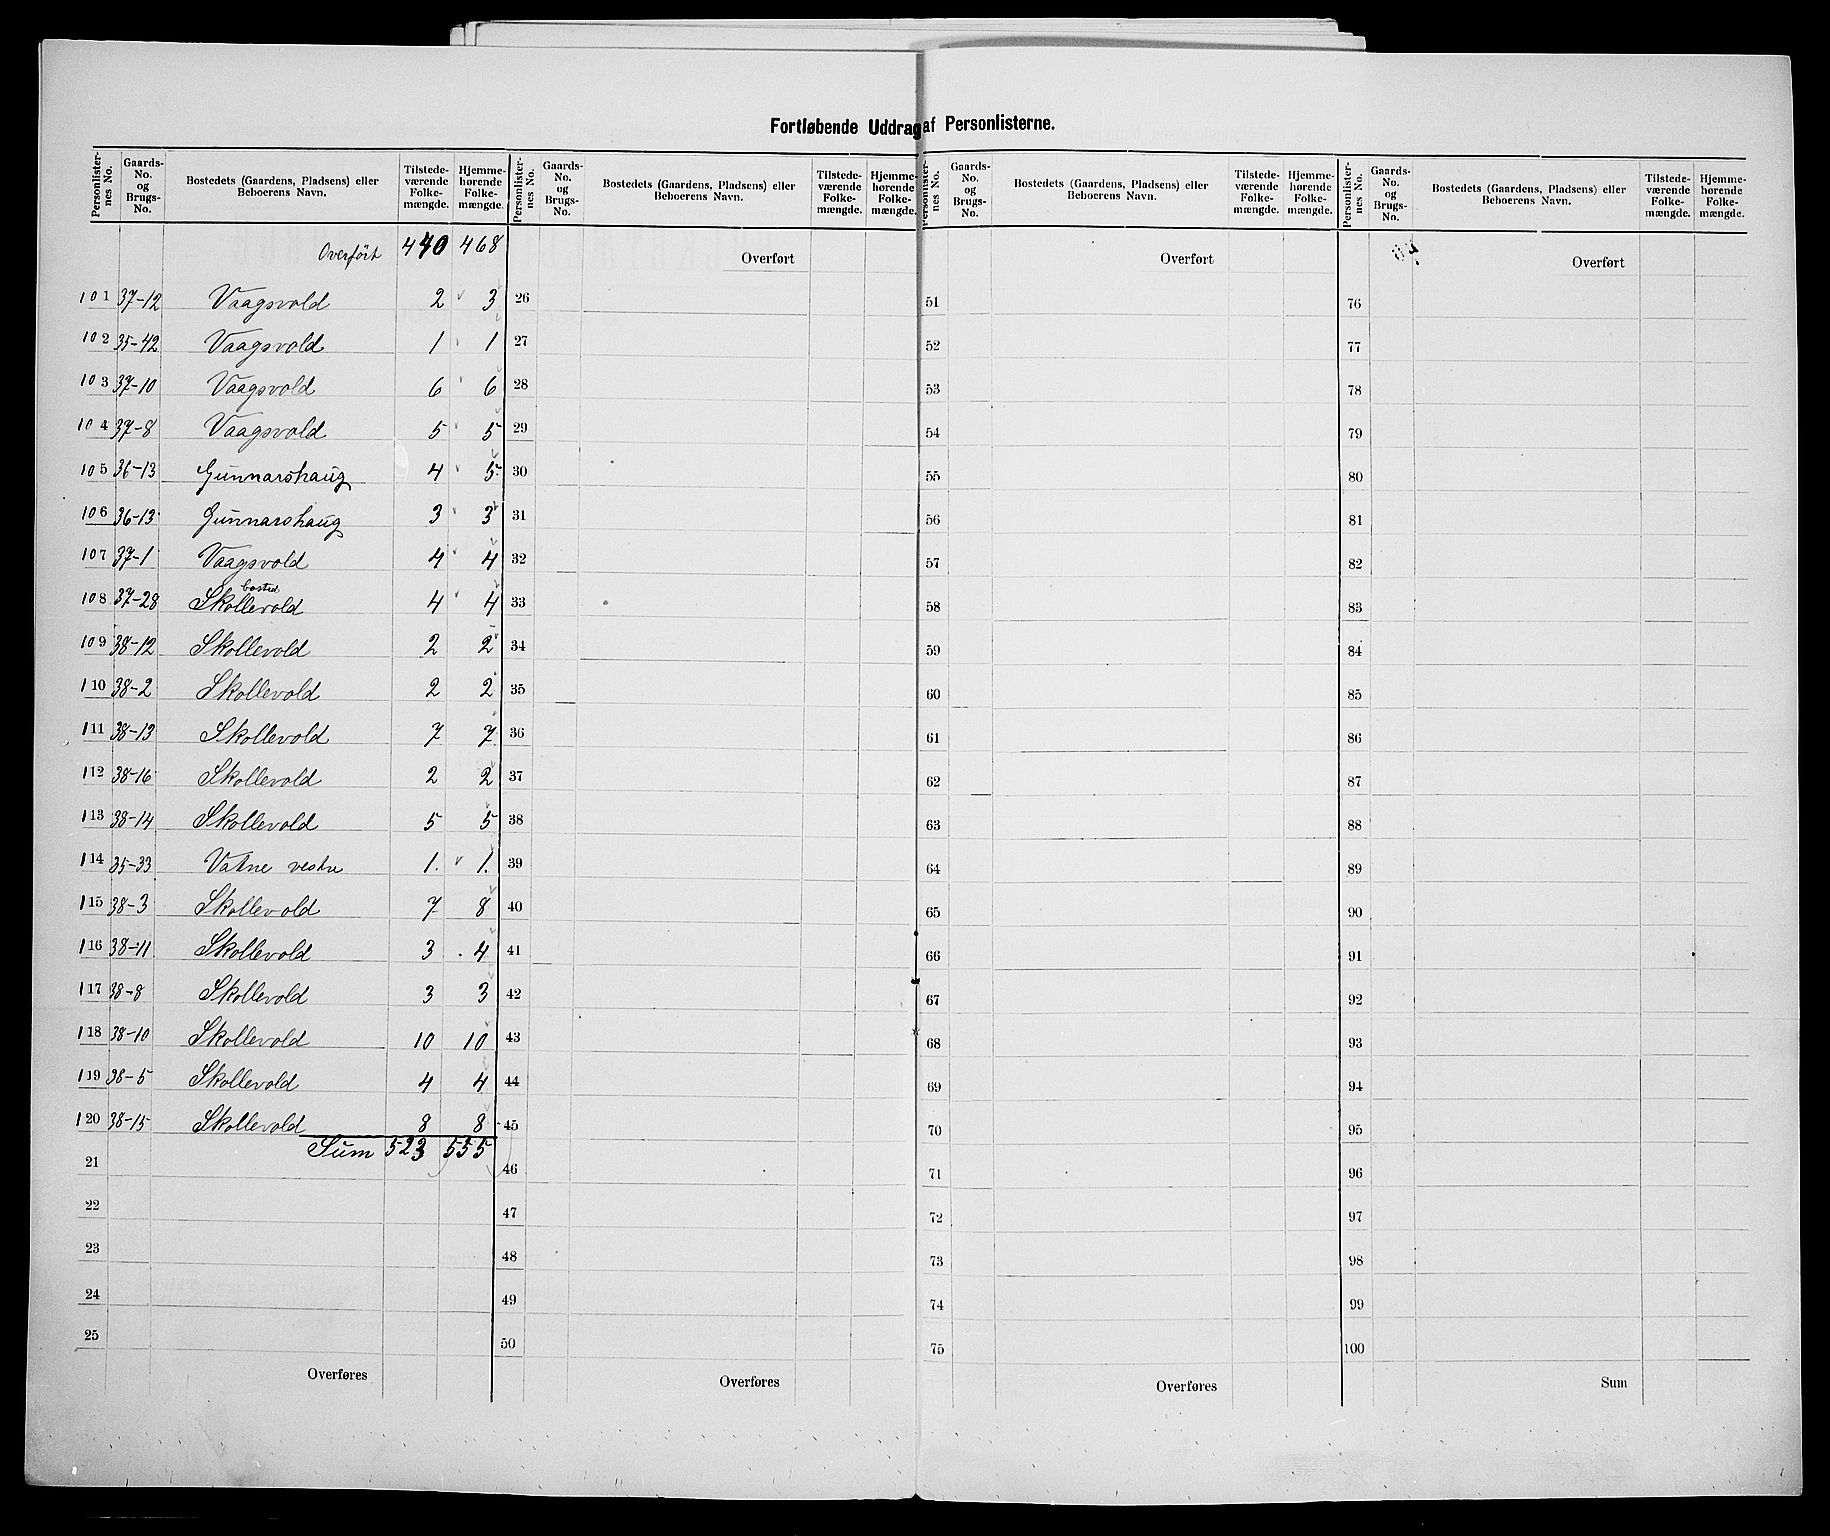 Fortløbende Uddrag af Personlisterne.
Personlister-nes No. | Gaards-No. og Brugs-No. | Bostedets (Gaardens, Pladsens) eller Beboerens Navn. | Tilstede-værende Folke-mængde. | Hjemme-hørende Folke-mængde. | Personlister-nes No. | Gaards-No. og Brugs-No. | Bostedets (Gaardens, Pladsens) eller Beboerens Navn. | Tilstede-værende Folke-mængde. | Hjemme-hørende Folke-mængde. | Personlister-nes No. | Gaards-No. og Brugs-No. | Bostedets (Gaardens, Pladsens) eller Beboerens Navn. | Tilstede-værende Folke-mængde. | Hjemme-hørende Folke-mængde. | Personlister-nes No. | Gaards-No. og Brugs-No. | Bostedets (Gaardens, Pladsens) eller Beboerens Navn. | Tilstede-værende Folke-mængde. | Hjemme-hørende Folke-mængde.
Overført 440 468 Overført Overført Overført
101 37-12 Vaagsvold 2 3 26 51 76
102 35-42 Vaagsvold 1 1 27 52 77
103 37-10 Vaagsvold 6 6 28 53 78
104 37-8 Vaagsvold 5 5 29 54 79
105 36-13 Gunnarshaug 4 5 30 55 80
106 36-13 Gunnarshaug 3 3 31 56 81
107 37-1 Vaagsvold 4 4 32 57 82
bosted
108 37-28 Skollevold 4 4 33 58 83
109 38-12 Skollevold 2 2 34 59 84
110 38-2 Skollevold 2 2 35 60 85
111 38-13 Skollevold 7 7 36 61 86
112 38-16 Skollevold 2 2 37 62 87
113 38-14 Skollevold 5 5 38 63 88
114 35-33 Vatne vestre 1. 1. 39 64 89
115 38-3 Skollevold 7 8 40 65 90
116 38-11 Skollevold 3 4 41 66 91
117 38-8 Skollevold 3 3 42 67 92
118 38-10 Skollevold 10 10 43 68 93
119 38-5 Skollevold 4 4 44 69 94
120 38-15 Skollevold 8 8 45 70 95
Sum 523 555
21 46 71 96
22 47 72 97
23 48 73 98
24 49 74 99
25 50 75 100
Overføres Overføres Overføres Sum